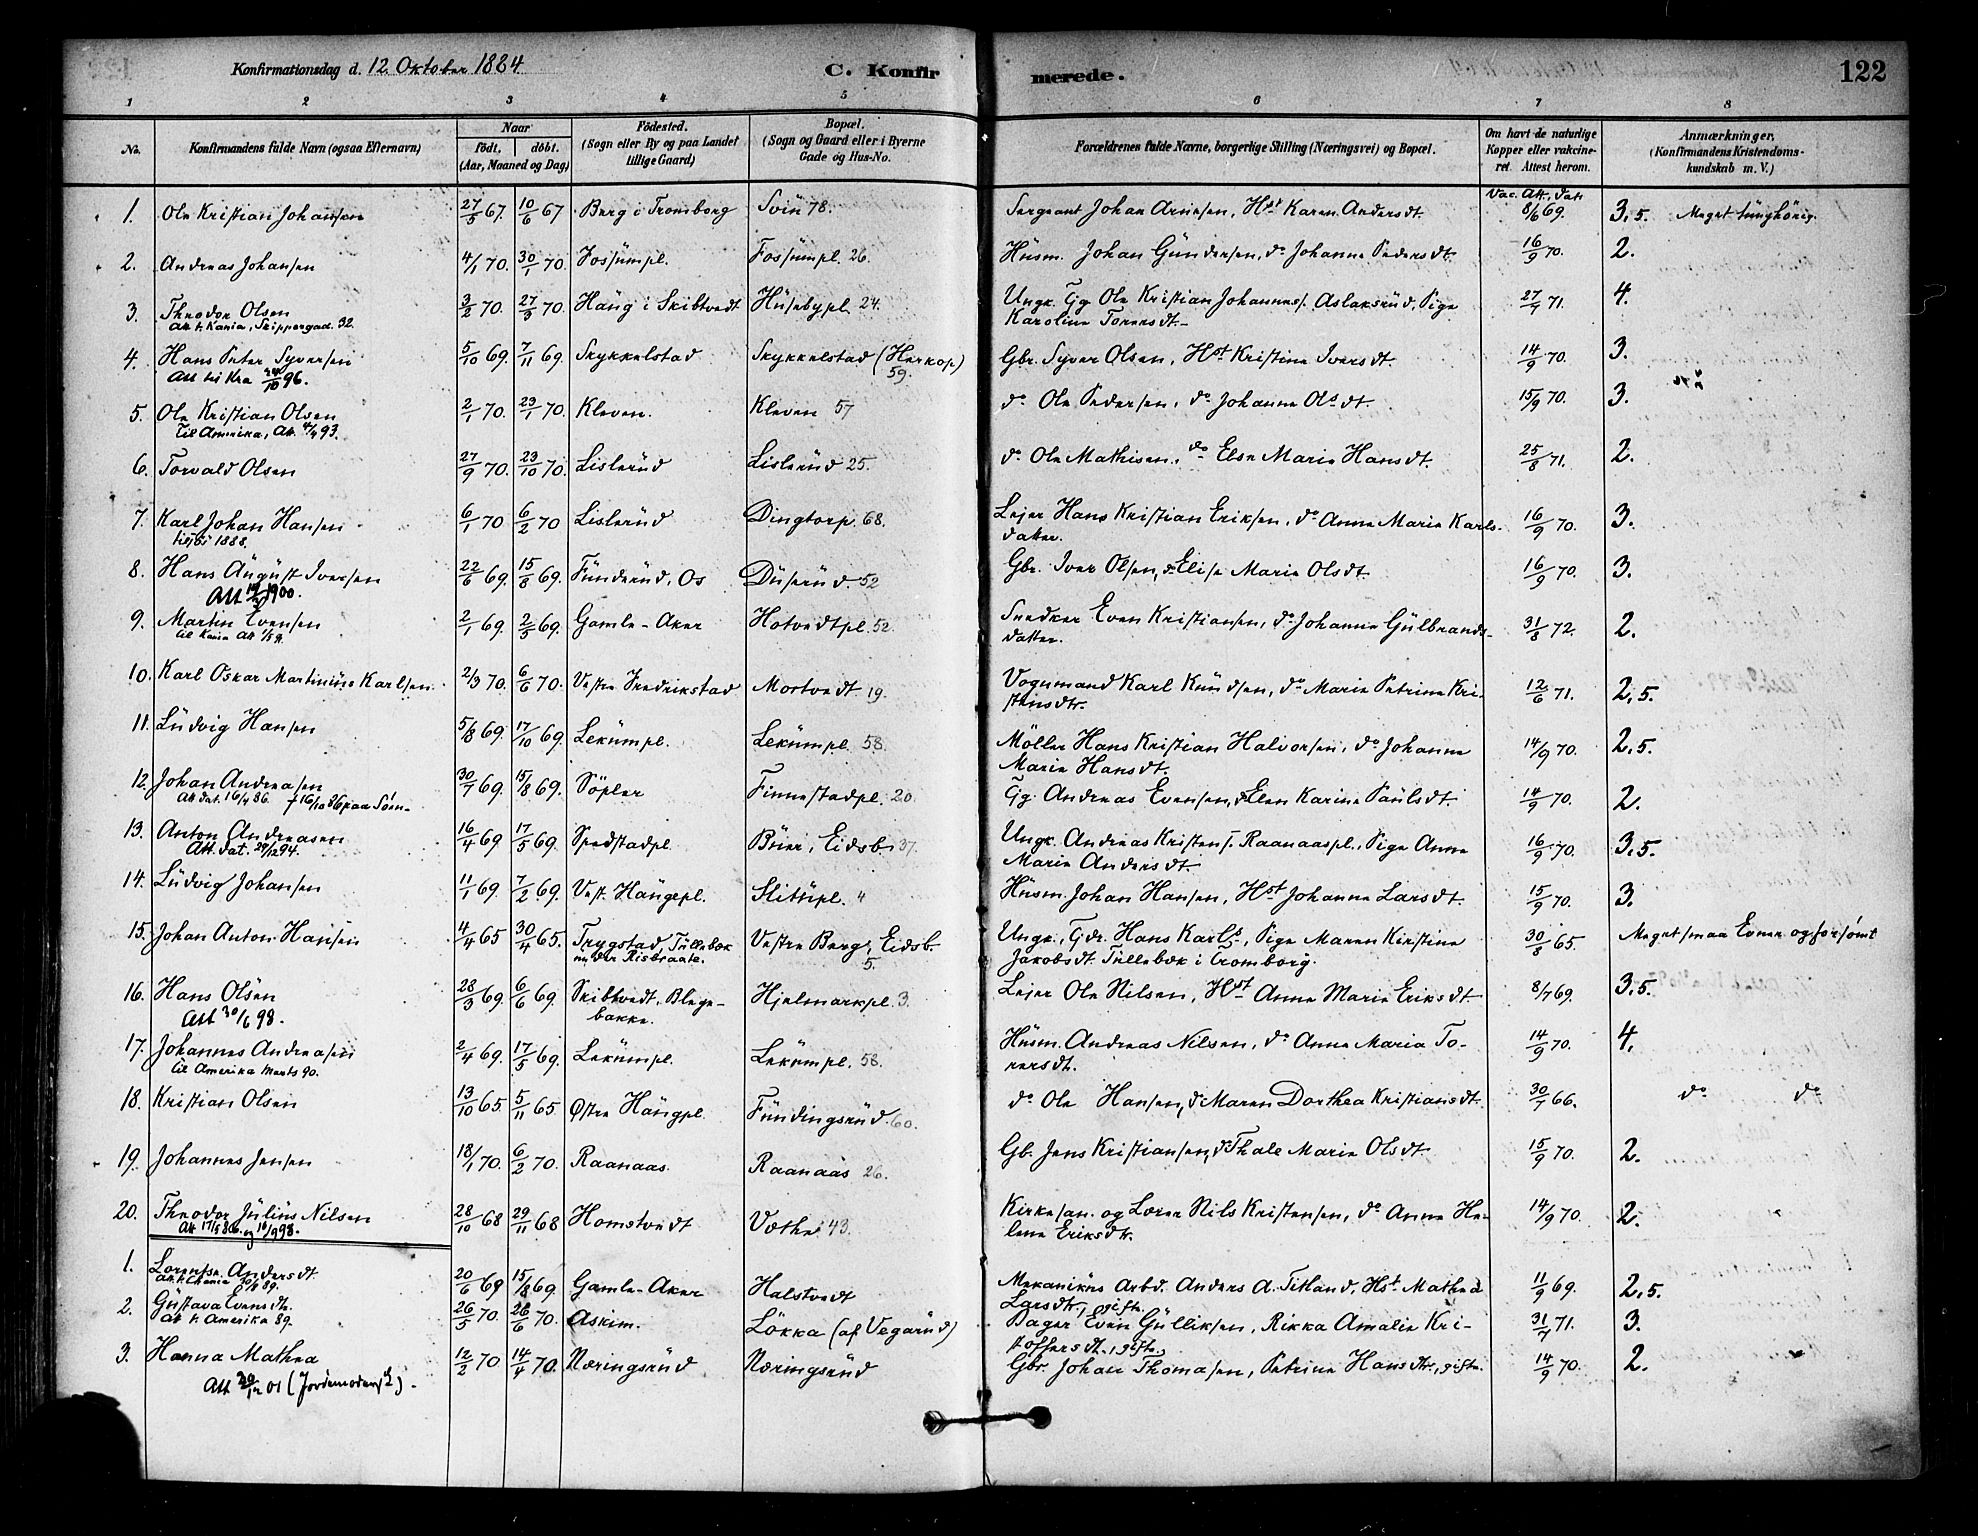 Konfirmationsdag d. 12 Oktober 1884
C. Konfirmerede.
122
1 2 3 4 5 6 7 8
No. Konfirmandens fulde Navn (ogsaa Efternavn) Naar født, døbt. (Aar, Maaned og Dag) Fødested. (Sogn eller By og paa Landet tillige Gaard) Bopæl. (Sogn og Gaard eller i Byerne Gade og Hus-No. Forældrenes fulde Navne, borgerlige Stilling (Næringsvei) og Bopæl. Om havt de naturlige Kopper eller vakcineret. Attest herom. Anmærkninger, (Konfirmandens Kristendomskundskab m. V.)
Vac. Att. dat.
1. Ole Kristian Johansen 27/5 67. 10/6 67 Berg i Tromborg Svin 78. Sergeant Johan Arnesen, Hst Karen Andersdt. 8/6 69. 3,5. Meget tunghørig.
2. Andreas Johansen 4/1 70. 30/1 70. Fossumpl. Fossumpl. 26. Husm. Johan Gundersen, do Johanne Pedersdt. 16/9 70. 2.
3. Theodor Olsen 3/2 70. 27/3 70. Haug i Skibtvedt Husebypl. 24. Ungk. Gg Ole Kristian Johannes. Aslaksrud, Pige Karoline Torersdt. 27/7 71. 4.
Att. t. Kania, Skippergad. 32.
4. Hans Peter Syversen 5/10 69. 7/11 69. Skykkelstad Skykkelstad (Herkop) 59. Gbr. Syver Olsen, Hst Kristine Iversdt. 14/9 70. 3.
Att til Kra 24/10 96.
5. Ole Kristian Olsen 2/1 70. 23/1 70. Kleven. Kleven 57 do Ole Pedersen, do Johanne Olsdt. 15/9 70. 3.
Til Amerika, Att. 4/4 93.
6. Torvald Olsen 27/9 70. 23/10 70. Lislerud Lislerud 25. do Ole Mathisen, do Else Marie Hansdt. 25/8 71. 2.
7. Karl Johan Hansen 6/1 70 6/2 70 Lislerud Dingtorp. 68. Lejer Hans Kristian Eriksen, do Anne Marie Karlsdatter. 16/9 70. 3.
tilsøs 1888.
8. Hans August Iversen 22/6 69. 15/8 69. Funderud, Os Duserud 52 Gbr. Iver Olsen, do Elise Marie Olsdt. 16/9 70. 3.
9. Martin Evensen 2/1 69. 2/5 69. Gamle-Aker Hotvedtpl. 52. Snedker Even Kristiansen, do Johanne Gulbrandsdatter. 31/8 72. 2.
10. Karl Oskar Martinius Karlsen 2/3 70. 6/6 70. Vestre Fredrikstad Mortvedt 19. Vognmand Karl Knudsen, do Marie Petrine Kristensdtr. 12/6 71. 2,5.
11. Ludvig Hansen 5/8 69. 17/10 69. Lekumpl. Lekumpl. 58. Møller Hans Kristian Halvorsen, do Johanne Marie Hansdt. 14/9 70. 2,5.
12. Johan Andreasen 30/7 69. 15/8 69. Søpler Finnestadpl. 20. Gg. Andreas Evensen, do Elen Karine Paulsdt. 14/9 70. 2.
Att. dat. 16/4 86. † 16/10 86 paa Søen
13. Anton Andreasen 16/4 69 17/5 69. Spedstadpl. Buer, Eidsb. 37. Ungk. Andreas Kristens. Raanaaspl., Pige Anne Marie Andersdt. 16/9 70. 3,5.
Att. dat. 29/12 94.
14. Ludvig Johansen 11/1 69. 7/2 69. Vest. Haugepl. Slitupl. 4 Husm. Johan Hansen, Hst Johanne Larsdt. 15/9 70. 3.
15. Johan Anton Hansen 4/4 65 30/4 65. Trygstad, Tullebæk nedre Risbraate. Vestre Berg, Eidsb. 5. Ungk., Gdr. Hans Karls., Pige Maren Kirstine Jakobsdt. Tullebæk i Tromborg. 30/8 65. Meget smaa Evner og forsømt
16. Hans Olsen 28/3 69. 6/6 69. Skibtvedt, Blegebakke. Hjelmarkpl. 3. Lejer Ole Nilsen, Hst Anne Marie Eriksdt. 8/7 69. 3,5.
Att 30/6 98.
17. Johannes Andreasen 2/4 69. 17/5 69. Lekumpl. Lekumpl. 58. Husm. Andreas Nilsen, do Anne Maria Torersdt. 14/9 70. 4.
til Amerika Marts 90.
18. Kristian Olsen 13/10 65. 5/11 65. Østre Haugpl. Fundingsrud 60. do Ole Hansen, do Maren Dorthea Kristiansdt. 30/7 66. do do
19. Johannes Jensen 18/1 70. 6/2 70. Raanaas. Raanaas 26. Gb. Jens Kristiansen, do Thale Marie Olsdt. 15/9 70. 2.
20. Theodor Julius Nilsen 28/10 68 29/11 68 Homstvedt Vothe 43. Kirkesan. og Lærer Nils Kristensen, do Anne Helene Eriksdtr. 14/9 70. 2.
Att 17/5 86. og 10/9 98.
1. Lorentse Andersdt. 20/6 69 15/8 69. Gamle-Aker Halstvedt Mekanikus Arbd. Anders A. Titland, Hst. Mathea Larsdtr., gifte. 11/9 69. 2,5.
2. Gustava Evensdtr. 26/5 70. 26/6 70. Askim. Løkka (af Vegarud) Bager Even Gulliksen, Rikka Amalie Kristoffersdt., gifte. 31/7 71. 3.
Att. t. Amerika 89.
3. Hanna Mathea 12/2 70 14/4 70. Næringsrud Næringsrud Gbr. Johan Thomasen, Petrine Hansdtr., gifte. 14/9 70. 2.
Att 30/12 01 (Jordemodersk.).